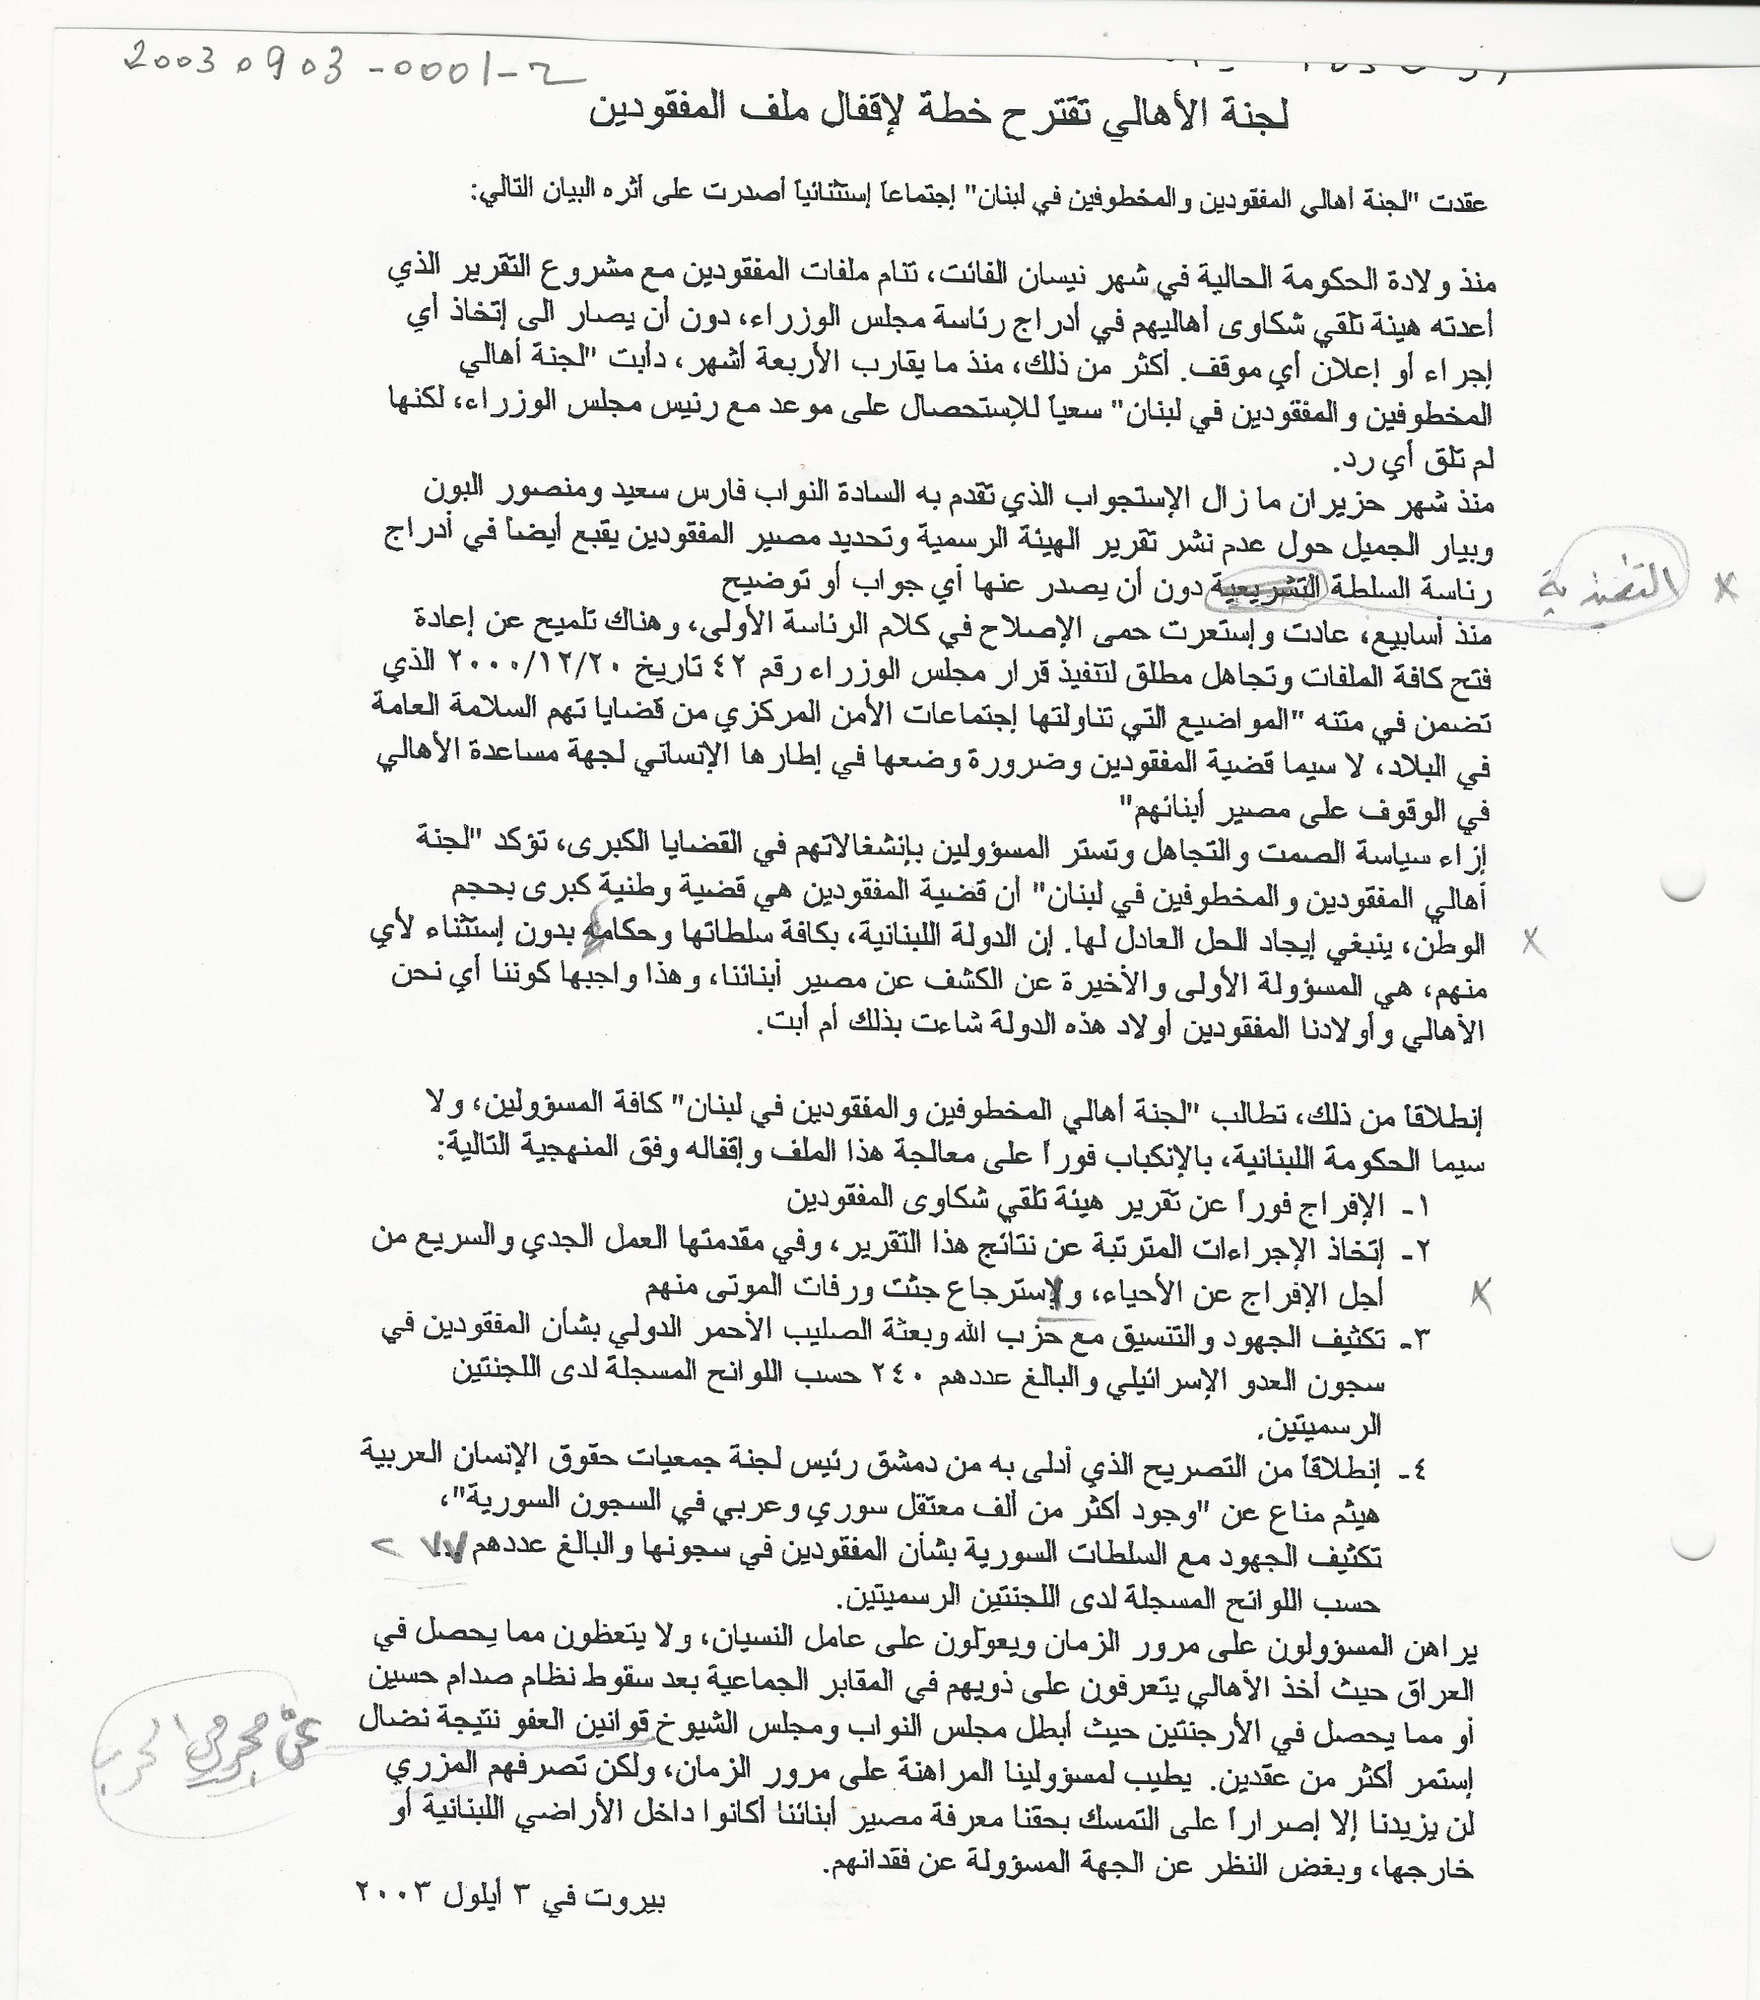 20030903-0001-2
لجنة الأهالي تقترح خطة لإقفال ملف المفقودين
عقدت "لجنة أهالي المفقودين والمخطوفين في لبنان" إجتماعاً إستثنائياً أصدرت على أثره البيان التالي:
منذ ولادة الحكومة الحالية في شهر نيسان الفائت، تنام ملفات المفقودين مع مشروع التقرير الذي
أعدته هيئة تلقي شكاوى أهاليهم في أدراج رئاسة مجلس الوزراء، دون أن يصار الى إتخاذ أي
إجراء أو إعلان أي موقف. أكثر من ذلك، منذ ما يقارب الأربعة أشهر، دأبت "لجنة أهالي
المخطوفين والمفقودين في لبنان" سعياً للإستحصال على موعد مع رئيس مجلس الوزراء، لكنها
لم تلق أي رد.
منذ شهر حزيران ما زال الإستجواب الذي تقدم به السادة النواب فارس سعيد ومنصور البون
وبيار الجميل حول عدم نشر تقرير الهيئة الرسمية وتحديد مصير المفقودين يقبع أيضاً في أدراج
رئاسة السلطة التشريعية دون أن يصدر عنها أي جواب أو توضيح
التنفيذية x
منذ أسابيع، عادت وإستعرت حمى الإصلاح في كلام الرئاسة الأولى، وهناك تلميح عن إعادة
فتح كافة الملفات وتجاهل مطلق لتنفيذ قرار مجلس الوزراء رقم ٤٢ تاريخ ٢٠٠٠/١٢/٢٠ الذي
تضمن في متنه "المواضيع التي تناولتها إجتماعات الأمن المركزي من قضايا تهم السلامة العامة
في البلاد، لا سيما قضية المفقودين وضرورة وضعها في إطارها الإنساني لجهة مساعدة الأهالي
في الوقوف على مصير أبنائهم"
إزاء سياسة الصمت والتجاهل وتستر المسؤولين بإنشغالاتهم في القضايا الكبرى، تؤكد "لجنة
أهالي المفقودين والمخطوفين في لبنان" أن قضية المفقودين هي قضية وطنية كبرى بحجم
الوطن، ينبغي إيجاد الحل العادل لها. إن الدولة اللبنانية، بكافة سلطاتها وحكامه بدون إستثناء لأي x
منهم، هي المسؤولة الأولى والأخيرة عن الكشف عن مصير أبنائنا، وهذا واجبها كوننا أي نحن
الأهالي وأولادنا المفقودين أولاد هذه الدولة شاءت بذلك أم أبت.
إنطلاقاً من ذلك، تطالب "لجنة أهالي المخطوفين والمفقودين في لبنان" كافة المسؤولين، ولا
سيما الحكومة اللبنانية، بالإنكباب فوراً على معالجة هذا الملف وإقفاله وفق المنهجية التالية:
١- الإفراج فوراً عن تقرير هيئة تلقي شكاوى المفقودين
٢- إتخاذ الإجراءات المترتبة عن نتائج هذا التقرير، وفي مقدمتها العمل الجدي والسريع من
أجل الإفراج عن الأحياء، وإسترجاع جثث ورفات الموتى منهم x
٣- تكثيف الجهود والتنسيق مع حزب الله وبعثة الصليب الأحمر الدولي بشأن المفقودين في
سجون العدو الإسرائيلي والبالغ عددهم ٢٤٠ حسب اللوائح المسجلة لدى اللجنتين
الرسميتين.
٤- إنطلاقاً من التصريح الذي أدلى به من دمشق رئيس لجنة جمعيات حقوق الإنسان العربية
هيثم مناع عن "وجود أكثر من ألف معتقل سوري وعربي في السجون السورية"،
تكثيف الجهود مع السلطات السورية بشأن المفقودين في سجونها والبالغ عددهم ...
حسب اللوائح المسجلة لدى اللجنتين الرسميتين.
يراهن المسؤولون على مرور الزمان ويعولون على عامل النسيان، ولا يتعظون مما يحصل في
العراق حيث أخذ الأهالي يتعرفون على ذويهم في المقابر الجماعية بعد سقوط نظام صدام حسين
أو مما يحصل في الأرجنتين حيث أبطل مجلس النواب ومجلس الشيوخ قوانين العفو نتيجة نضال
عن مجرمي الحرب
إستمر أكثر من عقدين. يطيب لمسؤولينا المراهنة على مرور الزمان، ولكن تصرفهم المزري
لن يزيدنا إلا إصراراً على التمسك بحقنا معرفة مصير أبنائنا أكانوا داخل الأراضي اللبنانية أو
خارجها، وبغض النظر عن الجهة المسؤولة عن فقدانهم.
بيروت في ٣ أيلول ٢٠٠٣